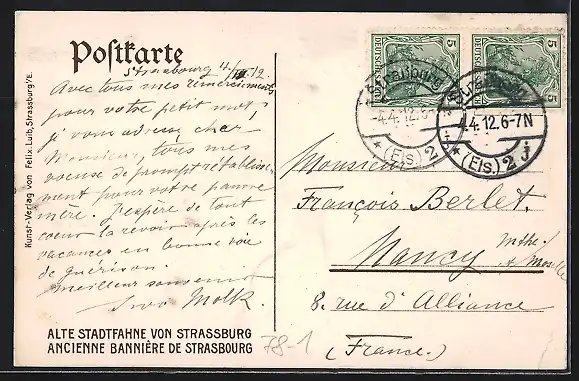 Postkarte
Strasbourg 4/IV 12.
Avec tous mes remerciements
pour votre petit mot,
je vous adresse cher
Monsieur, tous mes
voeux de prompt rétablisse-
ment pour votre pauvre
mère. J'espère de tout
coeur la revoir après les
vacances en bonne voie
de guérison.
Meilleur souvenir
Molk.
ALTE STADTFAHNE VON STRASSBURG
ANCIENNE BANNIÈRE DE STRASBOURG
Kunst-Verlag von Felix Luib, Strassburg i/E.
DEUTSCHES REICH
5 5
5 5
Strassburg
4.4.12.6-7N
* (Els.) 2 j
Strassburg
4.4.12.6-7N
* (Els.) 2 j
Monsieur
François Berlet.
Nancy Mthe.
et Moselle
8. rue d'Alliance
(France.)
78-1